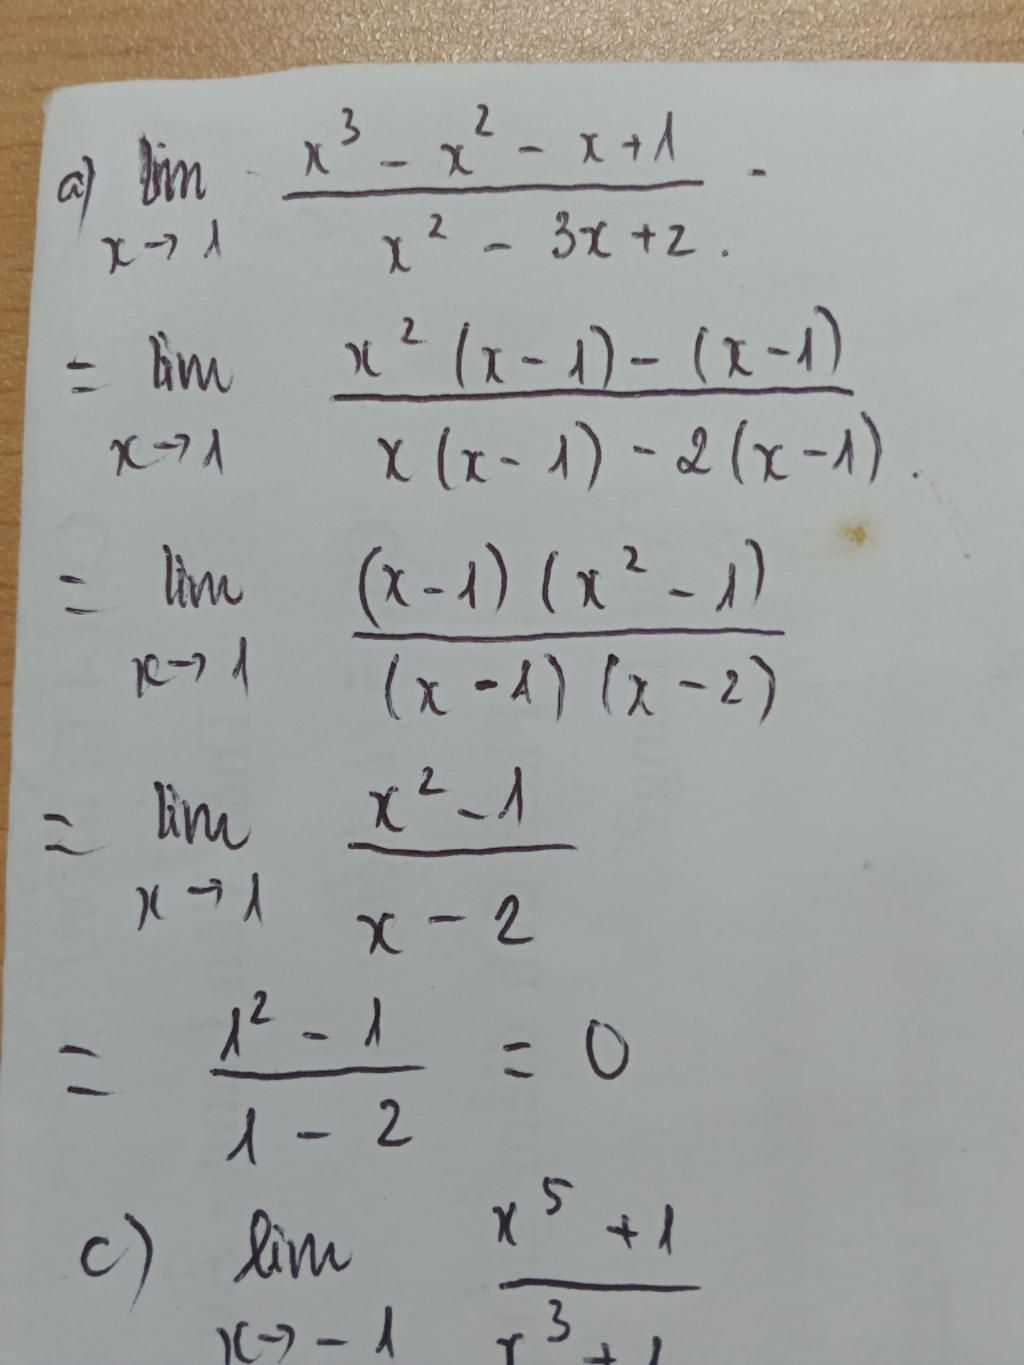 a) lim x³ - x² - x + 1
x → 1 x² - 3x + 2 .
= lim x² (x - 1) - (x - 1)
x → 1 x (x - 1) - 2 (x - 1) .
= lim (x - 1) (x² - 1)
x → 1 (x - 1) (x - 2)
= lim x² - 1
x → 1 x - 2
= 1² - 1 = 0
1 - 2
c) lim x⁵ + 1
x → - 1 x³ + 1